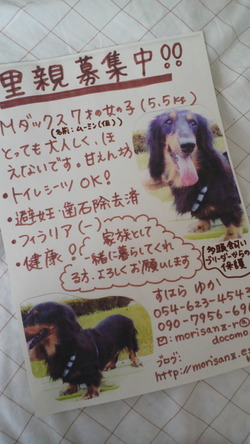 里親募集中!!
Mダックス7才の女の子(5.5kg)
(名前:ムーミン(仮))
とっても大人しく、ほ
えてないです。甘えん坊
・トイレシーツOK!
・避妊・歯石除去済
・フィラリア(-)
・健康!!
家族として
一緒に暮らしてくれ
る方、よろしくお願いします
多頭飼い
ブリーダーからの
保護
すはら ゆか
054-623-4543
090-7956-
✉:morisanz-r@
docomo
ブログ:
http://morisanz.e